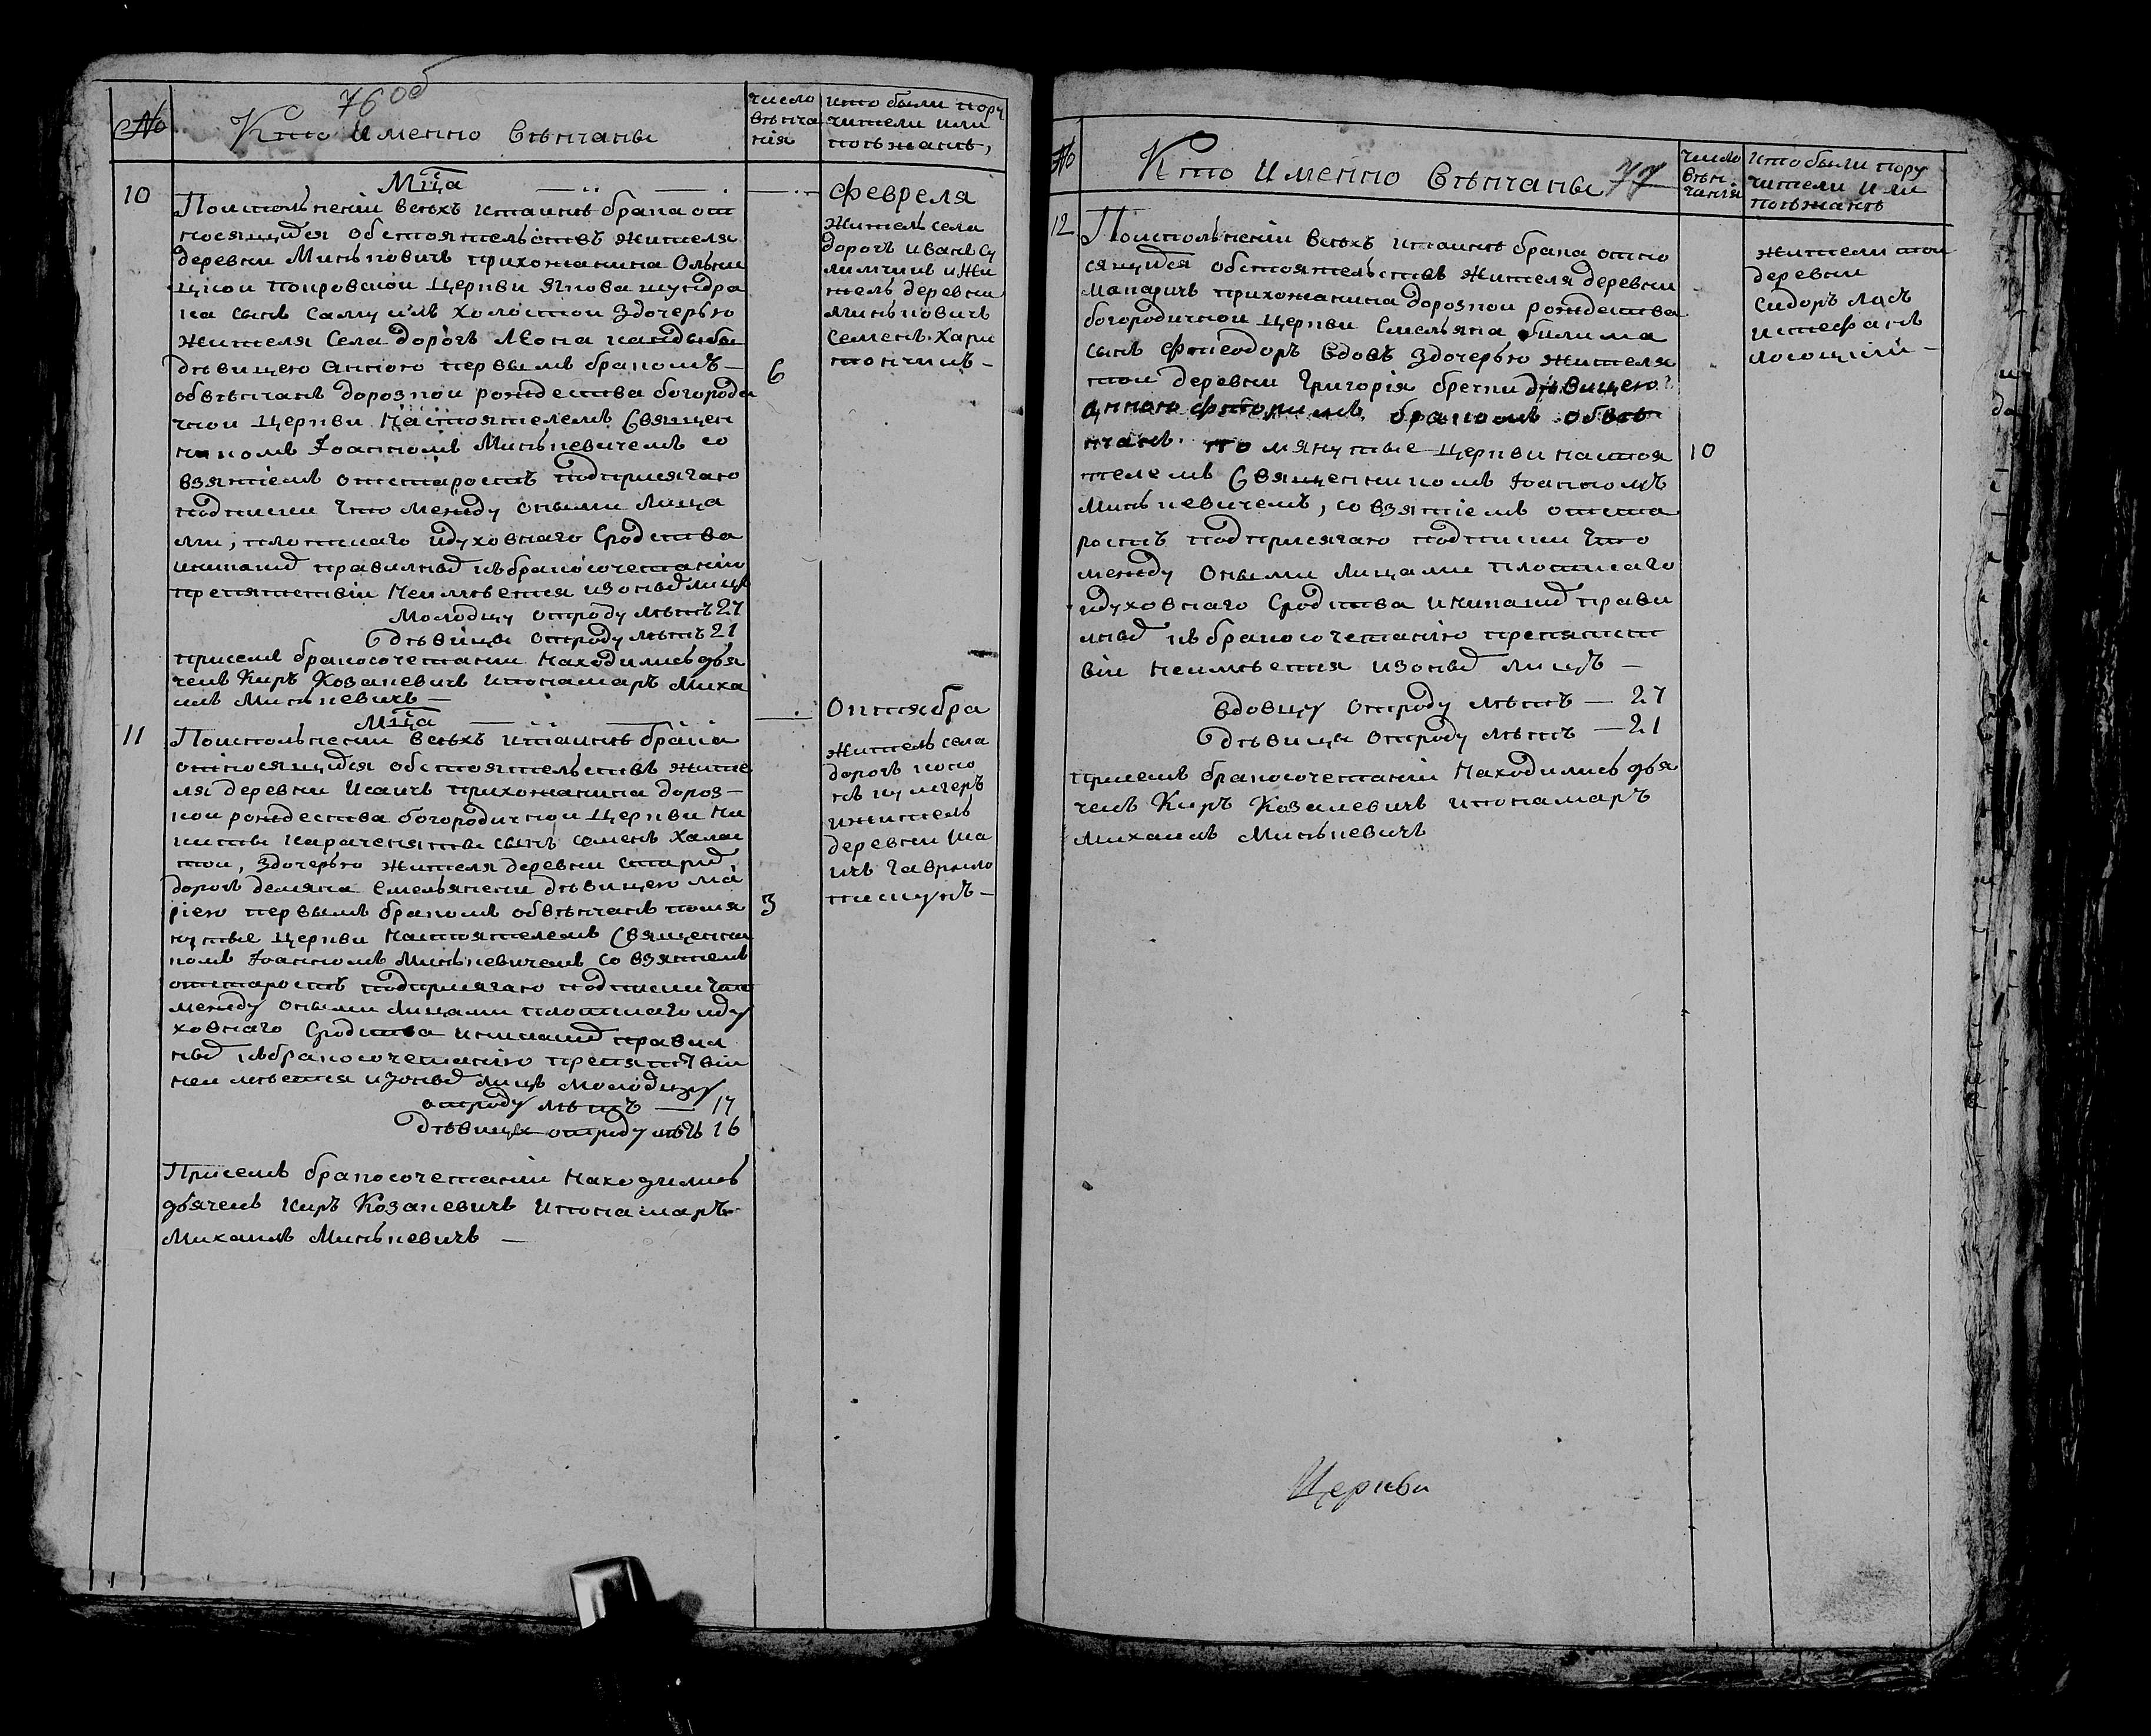 76 об
№
Кто именно венчаны
число
венча
ния
кто были пору
чители или
поезжанъ,
Мца
февреля
10
По исполнении всехъ к таинъ брака от
носящихся обстоятельствъ жителя
деревни Минковичъ прихожанина Ольни
цкой покровской церкви Якова
ка сынъ Самуилъ холостой з дочерью
жителя села дорогъ Леона
девицею Анною первымъ бракомъ —
обвенчанъ дорозкой рождества богороди
чной церкви настоятелемъ Священ
никомъ Иоанномъ Минкевичемъ со
взятиемъ от старостъ под присягаю
подписки что между оными лица
ми, плотскаго и духовнаго сродства
и никаких правилных къ бракосочетанию
препятствии не имеется из оных лицъ
молодцу от роду летъ 27
девице от роду летъ 21
при сем бракосочетании находились дья
чекъ Киръ Козакевичъ и понамаръ Миха
илъ Минкевичъ —
6
жителъ села
дорогъ иванъ
и жи
тель деревни
минковичъ
Семенъ Хари
тончикъ —
Мца
Октября
11
По исполнении всехъ к таинъ брака
относящихся обстоятельствъ жите
ля деревни Исаичъ прихожанина дороз—
кой рождества богородичной церкви Ни
киты сынъ семенъ холос
той, з дочерью жителя деревни старих
дорогъ демяна Емельянени девицею ма
риею первымъ бракомъ обвенчанъ помя
нутые церкви настоятелемъ Священни
комъ Иоанномъ Минкевичемъ со взятиемъ
от старостъ под присягаю подписки что
между оными лицами плотскаго и ду
ховнаго сродства и никаких правил
ных къ бракосочетанию препятствии
не имеется из оных лицъ молодцу
от роду летъ — 17
девице от роду летъ 16
При семъ бракосочетании находились
дьячекъ Киръ Козакевичъ и понамаръ
Михаилъ Минкевичъ —
3
житель села
дорогъ
и житель
деревни Иса
ичъ Гаврыло
—
№
Кто именно венчаны 77
число
вен
чания
кто были пору
чители или
поезжанъ
12
По исполнении всехъ к таинъ брака отно
сящихся обстоятельствъ жителя деревни
Макаричъ прихожанина дорозкой рождества
богородичной церкви Емельяна билима
сынъ Фтеодоръ вдовъ з дочерью жителя
той деревни Григория бречки девицею
Анною фторимъ бракомъ обвен
чанъ помянутые церкви настоя
телемъ Священникомъ Иоанномъ
Минкевичемъ, со взятиемъ от ста
ростъ под присягаю подписки что
между оными лицами плотскаго
и духовнаго сродства и никаких прави
лных къ бракосочетанию препятст
вии не имеется из оных лицъ —
вдовцу от роду летъ — 27
девице от роду летъ — 21
при семъ бракосочетании находились дья
чекъ Киръ Козакевичъ и понамаръ
Михаилъ Минкевичъ
10
жители той
деревни
Сидоръ Лосъ
и стефанъ
—
Церкви